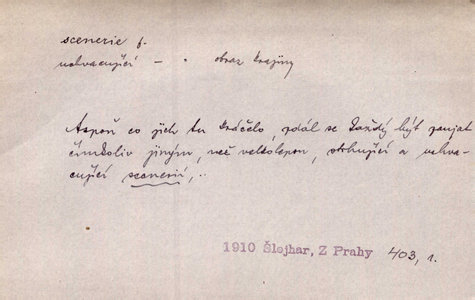 scenerie f.
uchvacující – " obraz krajiny
Aspoň co jich tu kráčelo, zdál se každý být zaujat
čímkoliv jiným, než velkolepou, strhující a uchva-
cující scenerií,..
1910 Šlejhar, Z Prahy 403, 1.